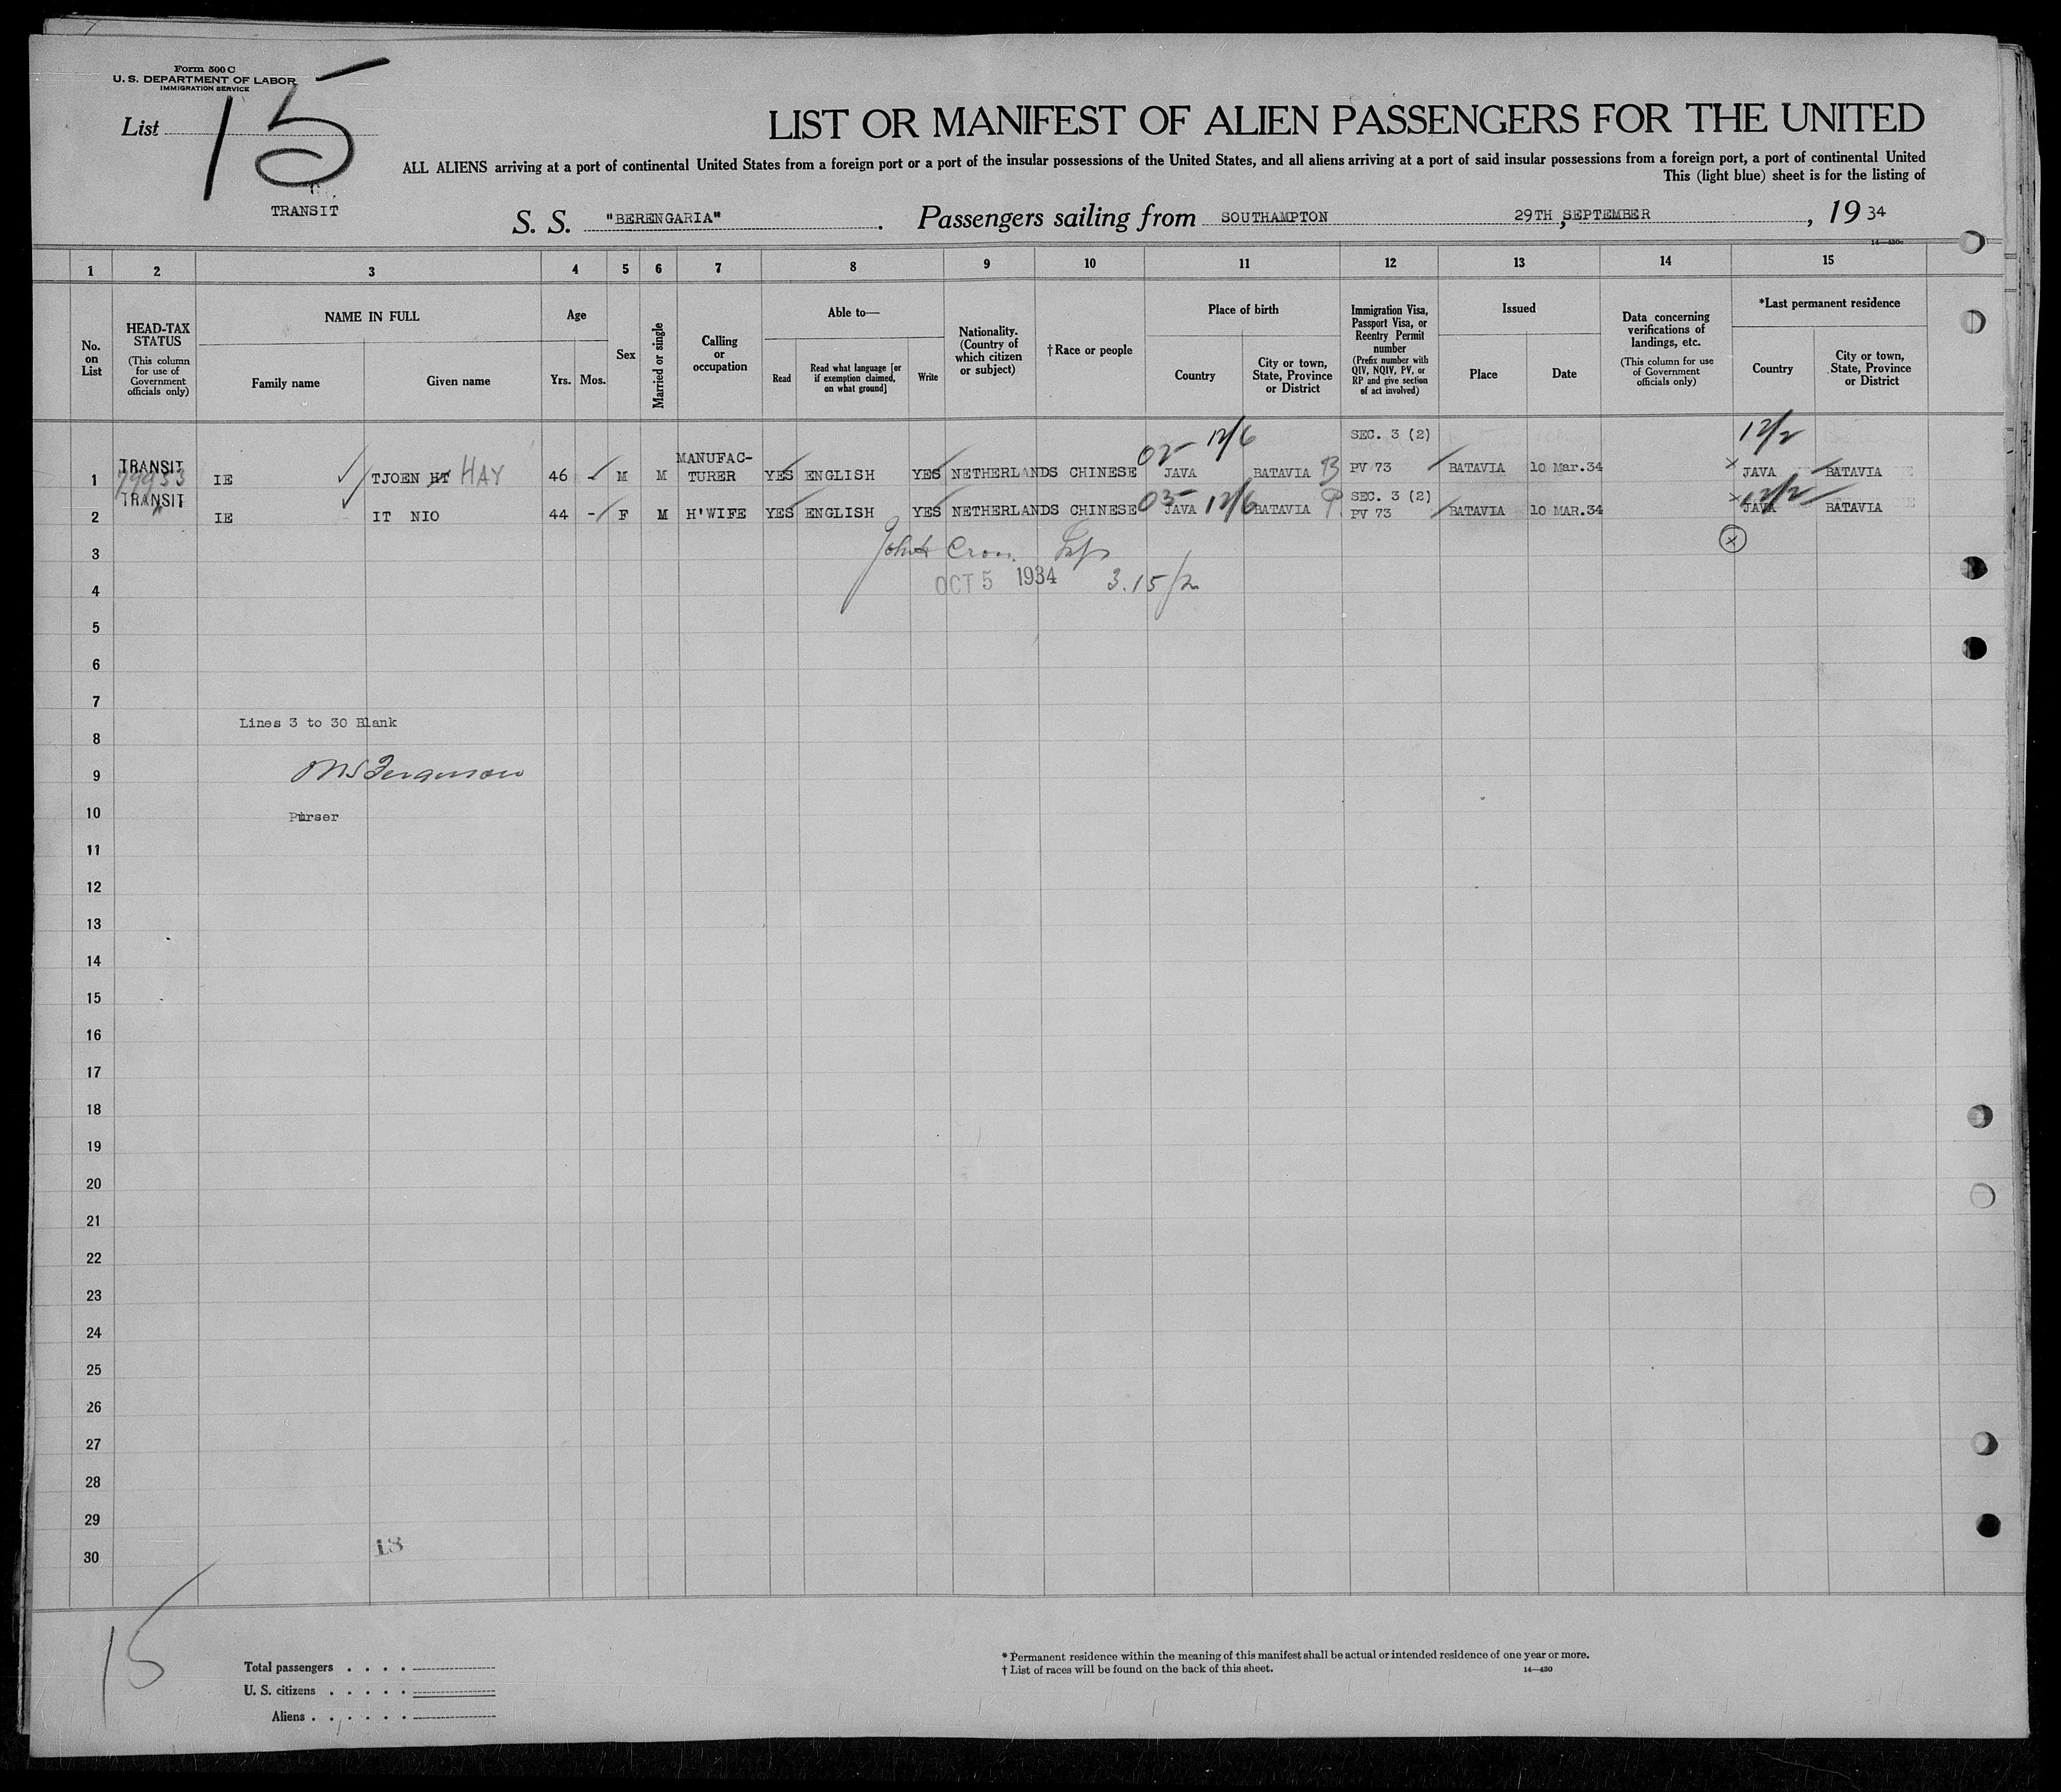 Form 500 C
U. S. DEPARTMENT OF LABOR
IMMIGRATION SERVICE
List 15
TRANSIT
LIST OR MANIFEST OF ALIEN PASSENGERS FOR THE UNITED
ALL ALIENS arriving at a port of continental United States from a foreign port or a port of the insular possessions of the United States, and all aliens arriving at a port of said insular possessions from a foreign port, a port of continental United
This (light blue) sheet is for the listing of
S. S. "BERENGARIA". Passengers sailing from SOUTHAMPTON 29TH, SEPTEMBER, 19 34
14—430c
1 2 3 4 5 6 7 8 9 10 11 12 13 14 15
No. on List
HEAD-TAX STATUS
(This column for use of Government officials only)
NAME IN FULL
Family name
Given name
Age
Yrs. Mos.
Sex
Married or single
Calling or occupation
Able to—
Read
Read what language [or if exemption claimed, on what ground]
Write
Nationality. (Country of which citizen or subject)
†Race or people
Place of birth
Country
City or town, State, Province or District
Immigration Visa, Passport Visa, or Reentry Permit number
(Prefix number with QIV, NQIV, PV, or RP and give section of act involved)
Issued
Place
Date
Data concerning verifications of landings, etc.
(This column for use of Government officials only)
*Last permanent residence
Country
City or town, State, Province or District
02 12/6 SEC. 3 (2) 12/2
1 TRANSIT IE TJOEN HT HAY 46 M M MANUFACTURER YES ENGLISH YES NETHERLANDS CHINESE JAVA BATAVIA B PV 73 BATAVIA 10 Mar.34 x JAVA BATAVIA
2 TRANSIT IE IT NIO 44 - F M H'WIFE YES ENGLISH YES NETHERLANDS CHINESE 03 JAVA 12/6 BATAVIA SEC. 3 (2) PV 73 BATAVIA 10 MAR.34 x 12/2 JAVA BATAVIA
3 x
OCT 5 1934 3.15/2
4
5
6
7
Lines 3 to 30 Blank
8
9
Ferguson
10 Purser
11
12
13
14
15
16
17
18
19
20
21
22
23
24
25
26
27
28
29
18
30
15
Total passengers . . . .
U. S. citizens . . . . .
Aliens . . . . . .
* Permanent residence within the meaning of this manifest shall be actual or intended residence of one year or more.
† List of races will be found on the back of this sheet.
14—430